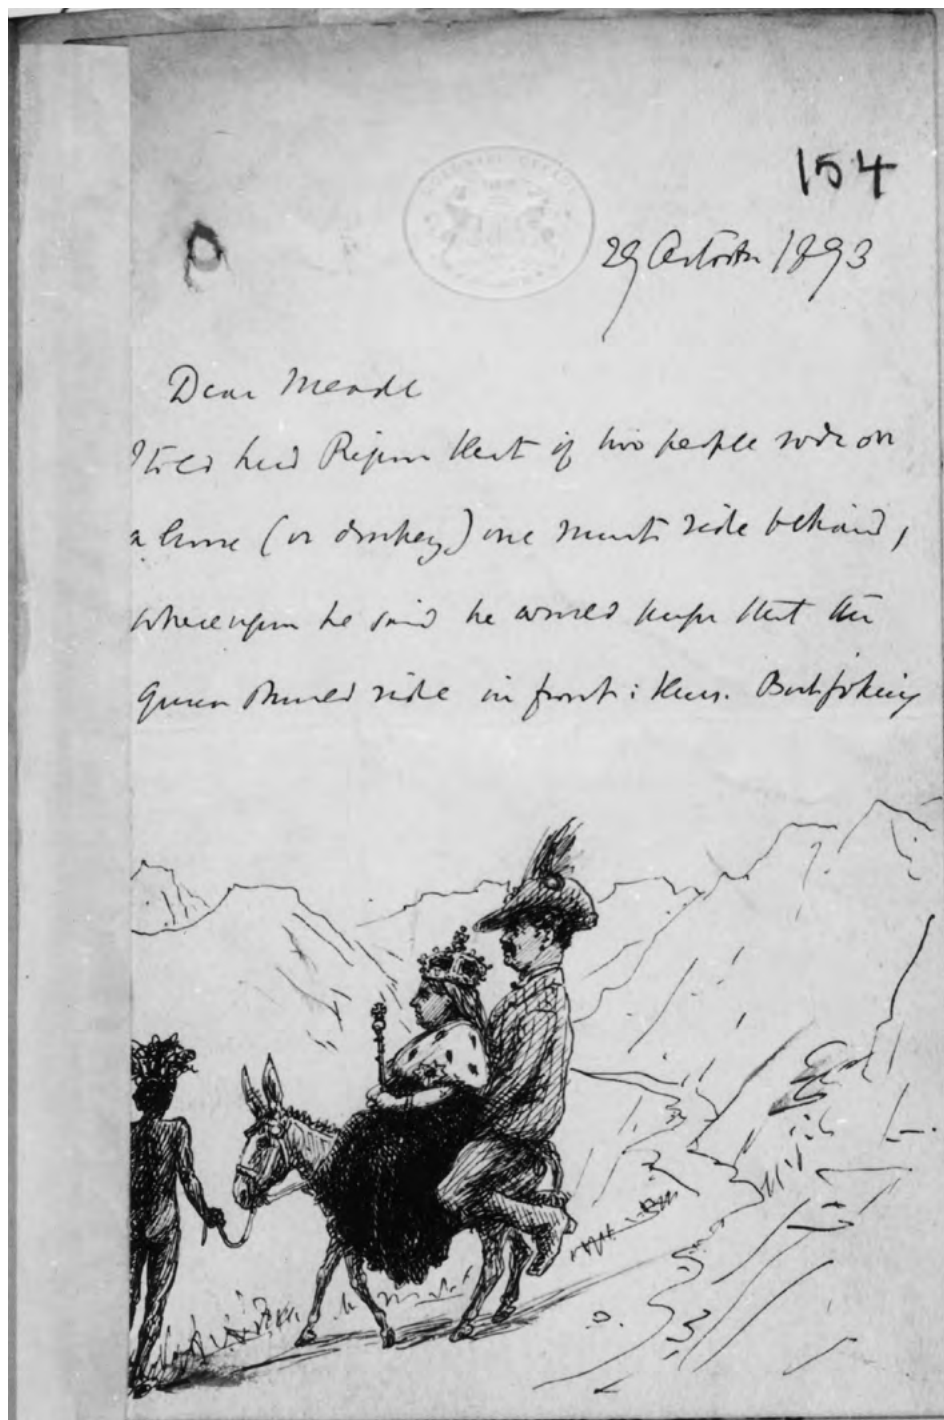 COLONIAL OFFICE
154
29 October 1893
Dear Meade
I told Lord Ripon that if two people rode on
a horse (or donkey) one must ride behind,
whereupon he said he would hope that the
Queen should ride in front: thus. But joking